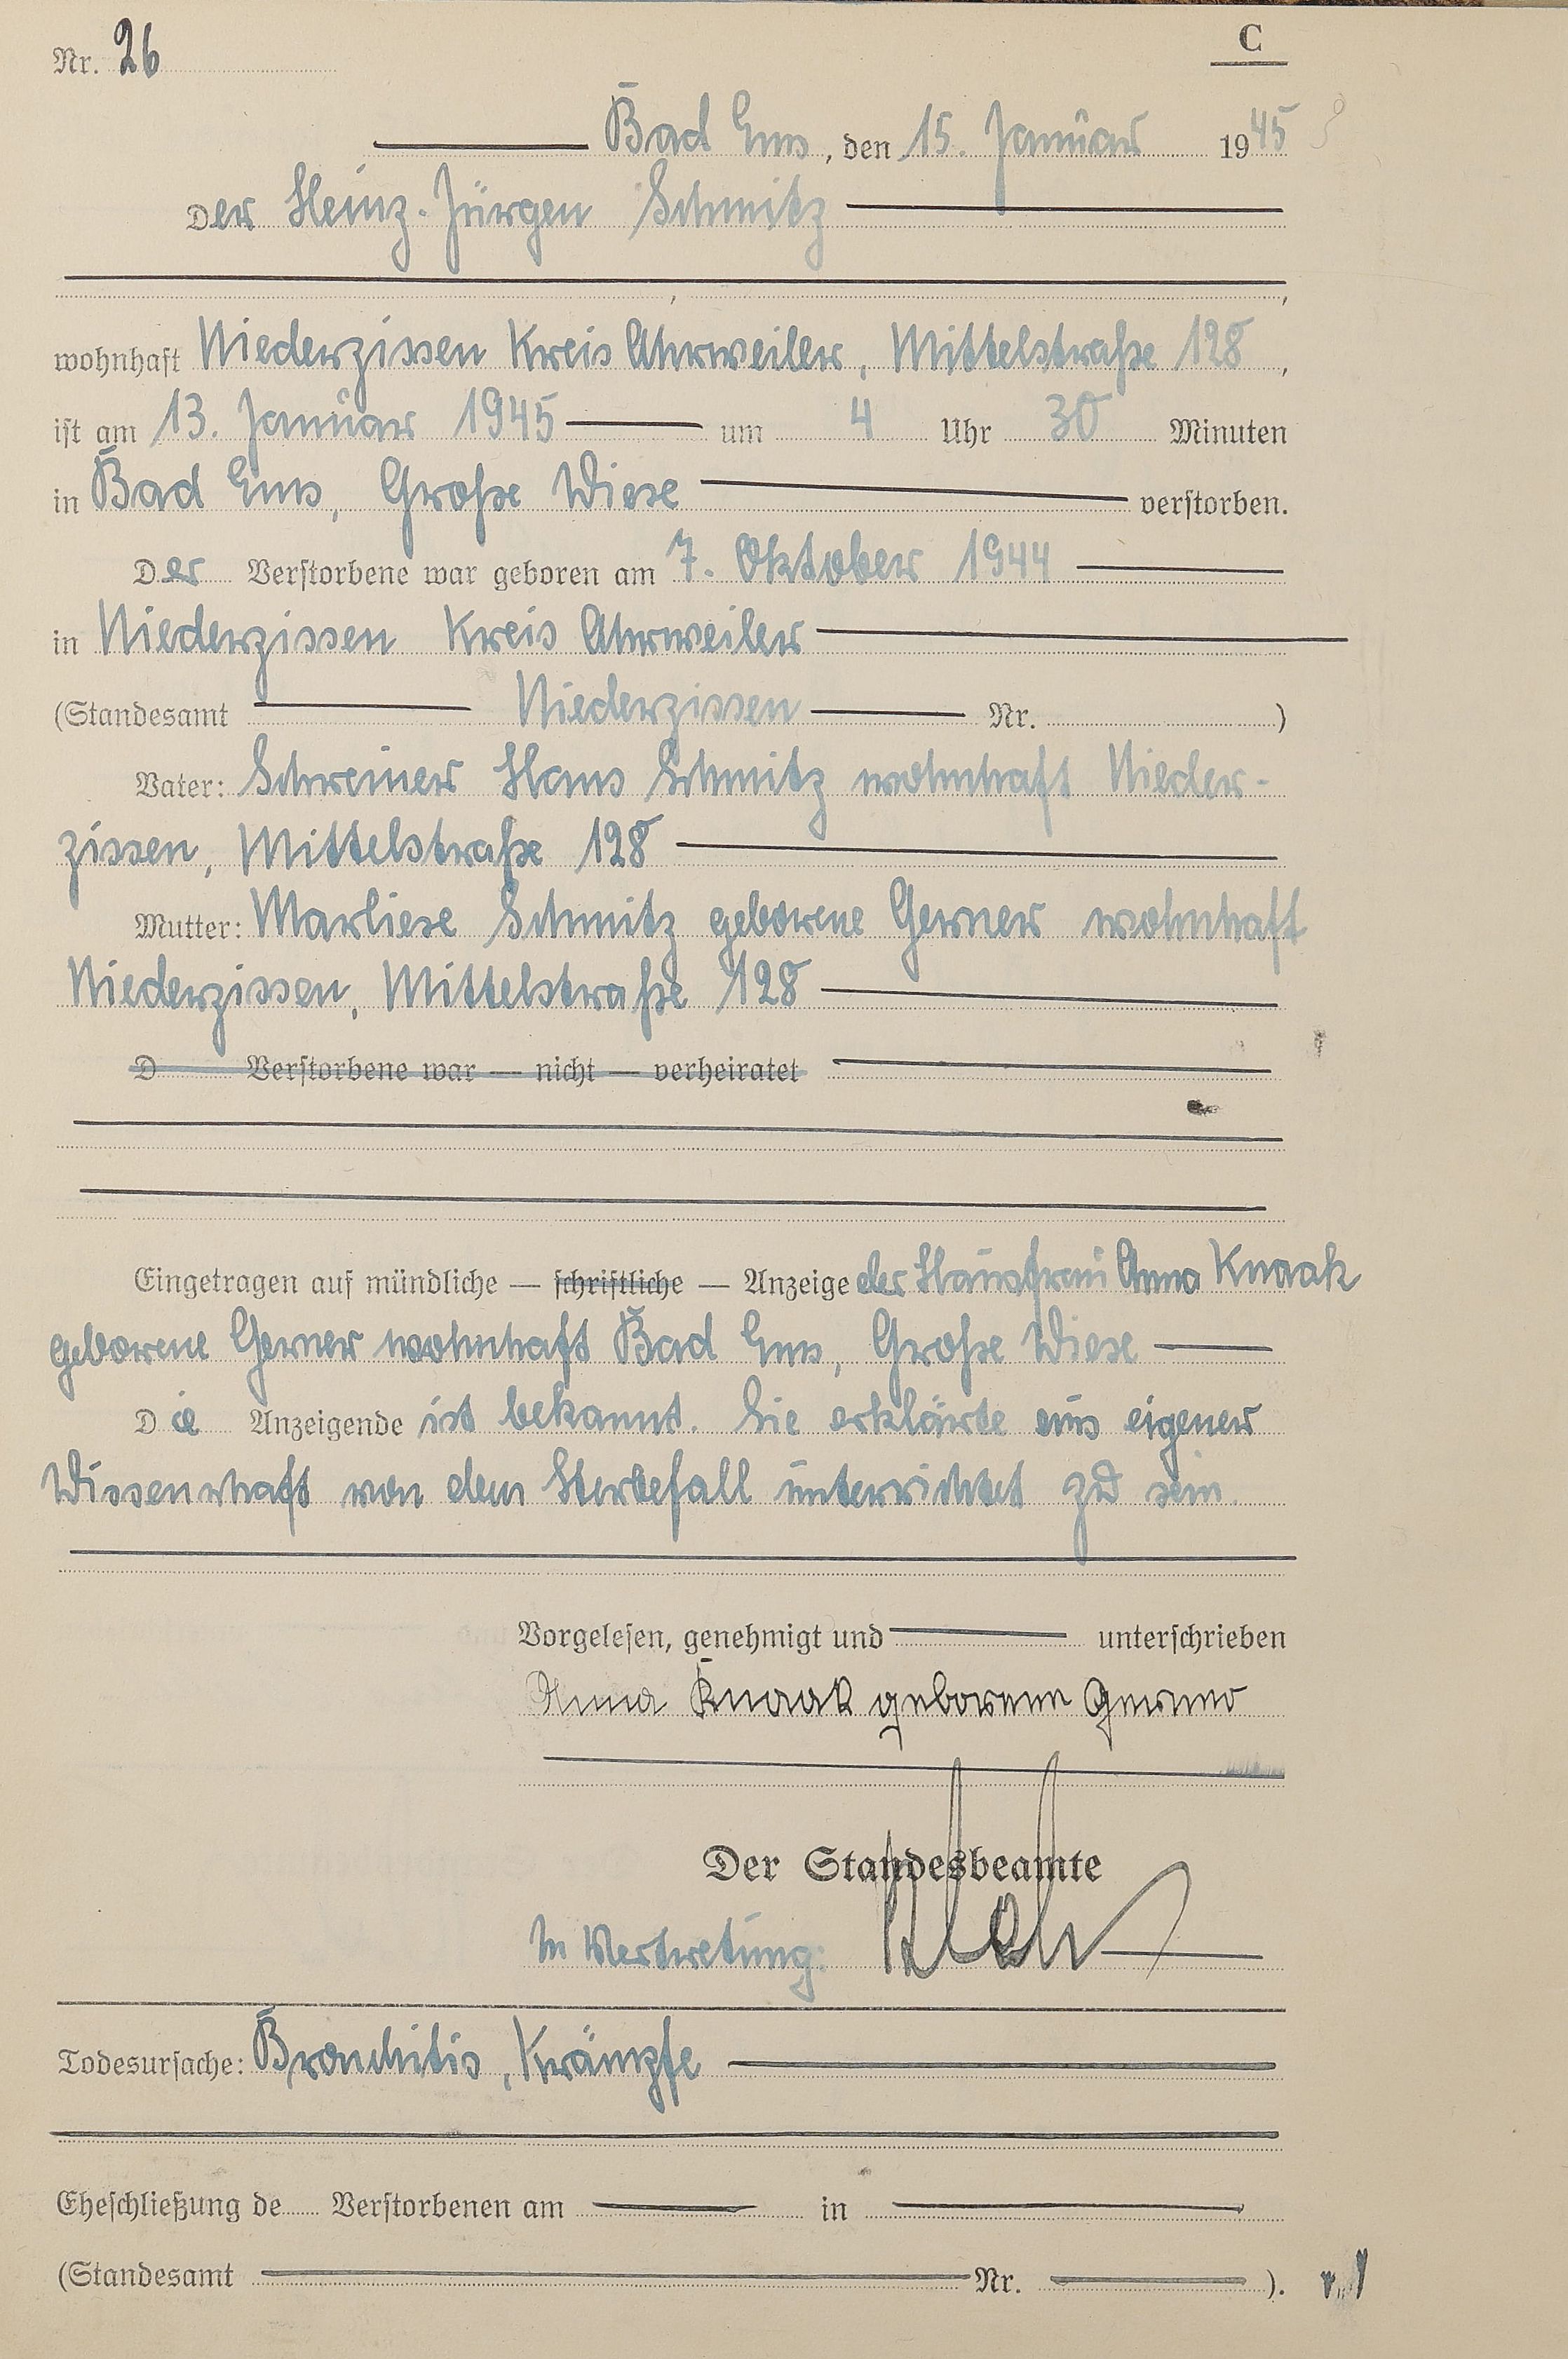 Nr. 26
C
Bad Ems, den 15. Januar 1945
Der Heinz-Jürgen Schmitz
wohnhaft Niederzissen Kreis Ahrweiler, Mittelstraße 128,
ist am 13. Januar 1945 um 4 Uhr 30 Minuten
in Bad Ems, Große Wiese verstorben.
Der Verstorbene war geboren am 7. Oktober 1944
in Niederzissen Kreis Ahrweiler
(Standesamt Niederzissen Nr. )
Vater: Schreiner Hans Schmitz wohnhaft Nieder-
zissen, Mittelstraße 128
Mutter: Marliese Schmitz geborene Gerner wohnhaft
Niederzissen, Mittelstraße 128
D Verstorbene war — nicht — verheiratet
Eingetragen auf mündliche — schriftliche — Anzeige der Hausfrau Anna Knaak
geborene Gerner wohnhaft Bad Ems, Große Wiese
Die Anzeigende ist bekannt. Sie erklärte aus eigener
Wissenschaft von dem Sterbefall unterrichtet zu sein.
Vorgelesen, genehmigt und unterschrieben
Anna Knaak geborene Gerner
Der Standesbeamte
In Vertretung:
Todesursache: Bronchitis, Krämpfe
Eheschließung de Verstorbenen am in
(Standesamt Nr. ).